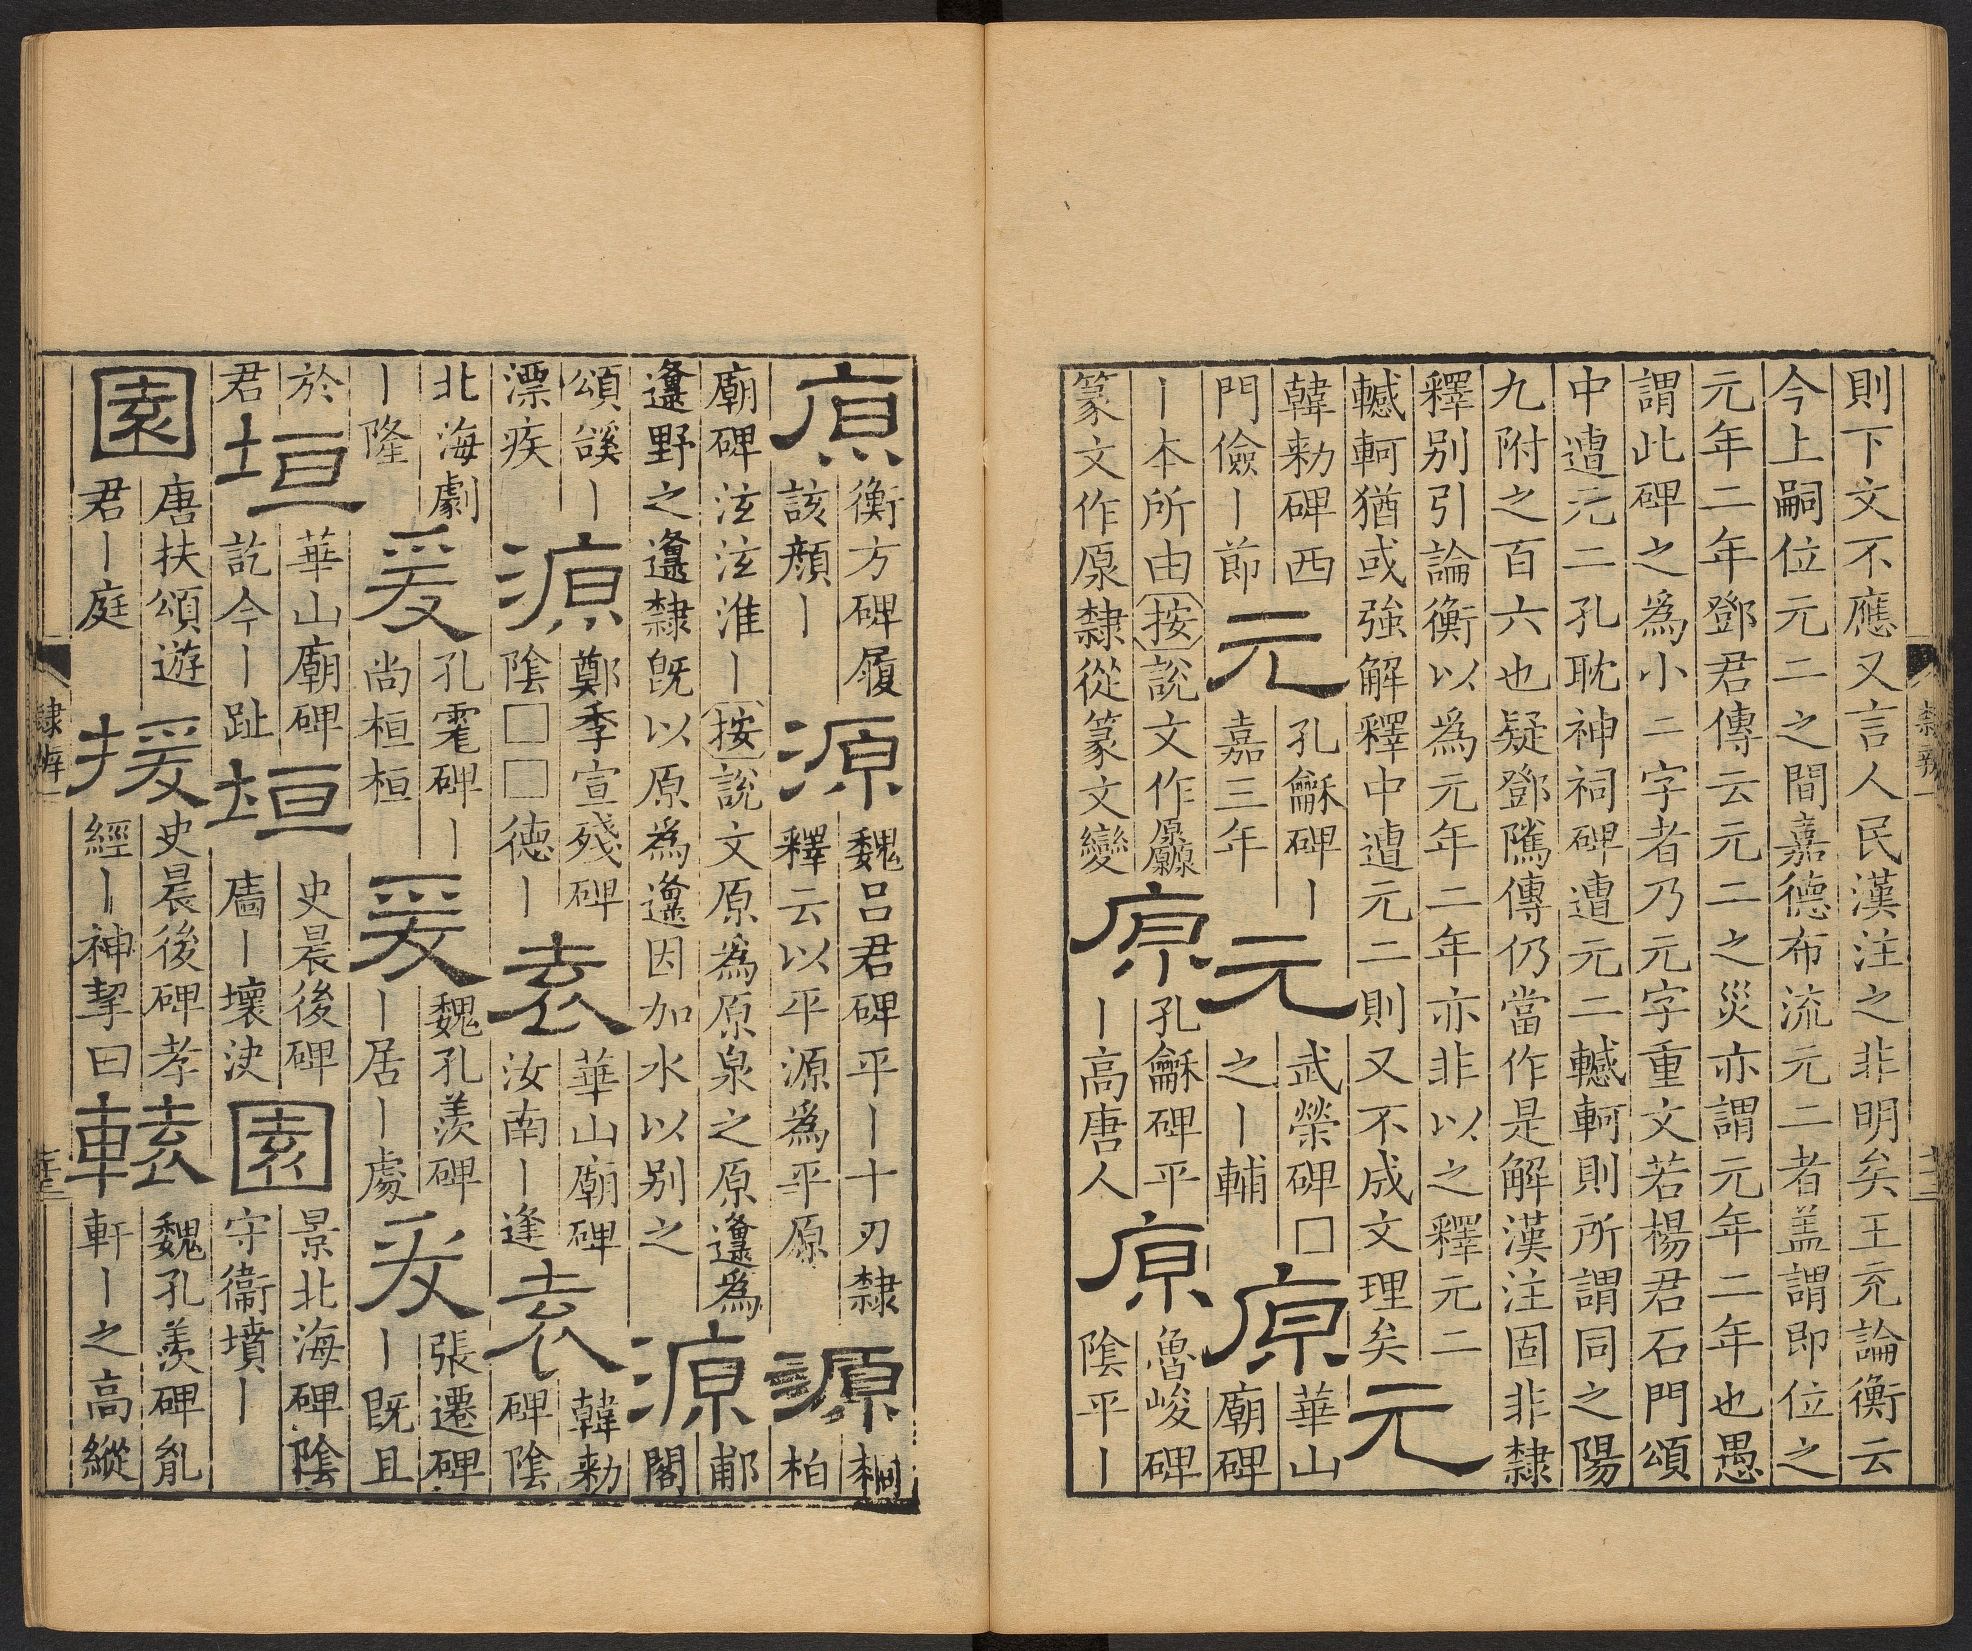 則下文不應又言人民漢注之非明矣王充論衡云
今上嗣位元二之間嘉德布流元二者盖謂即位之
元年二年鄧君傳云元二之災亦謂元年二年也愚
謂此碑之爲小二字者乃元字重文若楊君石門頌
中遭元二孔耽神祠碑遭元二轗軻則所謂同之陽
九附之百六也疑鄧騭傳仍當作是解漢注固非隸
釋别引論衡以爲元年二年亦非以之釋元二
轗軻猶或強解釋中遭元二則又不成文理矣
元
韓勑碑西
門儉ー節
元
孔龢碑ー
嘉三年
元
武榮碑□
之ー輔
原
華山
廟碑
ー本所由按說文作厵
篆文作原隸從篆文變
原
孔龢碑平
ー高唐人
原
魯峻碑
陰平ー
原
衡方碑履
該顏ー
源
魏呂君碑平ー十刃隸
釋云以平源爲平原
源
桐
柏
廟碑泫泫淮ー按說文原爲原泉之原邍爲
邍野之邍隸旣以原爲邍因加水以别之
源
郙
閣
頌谿ー
漂疾
源
鄭季宣殘碑
陰□□德ー
袁
華山廟碑
汝南ー逢
袁
韓勑
碑陰
北海劇
ー隆
爰
孔宙碑ー
尚桓桓
爰
魏孔羨碑
ー居ー處
爰
張遷碑
ー旣且
於
君
垣
華山廟碑
訖今ー趾
垣
史晨後碑
廧ー壞決
園
景北海碑陰
守衞墳ー
園
唐扶頌遊
君ー庭
援
史晨後碑孝
經ー神挈曰
轅
魏孔羨碑胤
軒ー之高縱